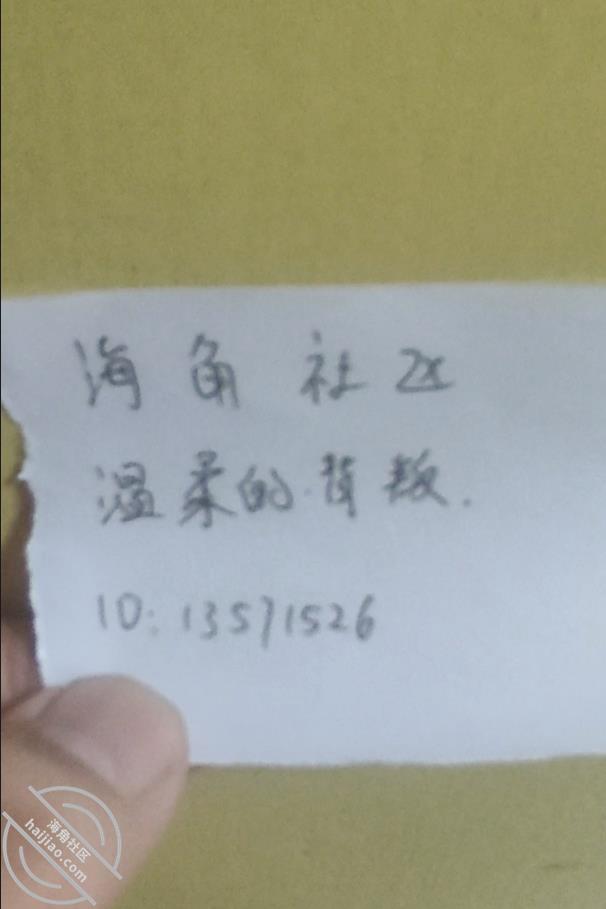 海角社区
温柔的背叛.
ID: 13571526
海角社区
haijiao.com